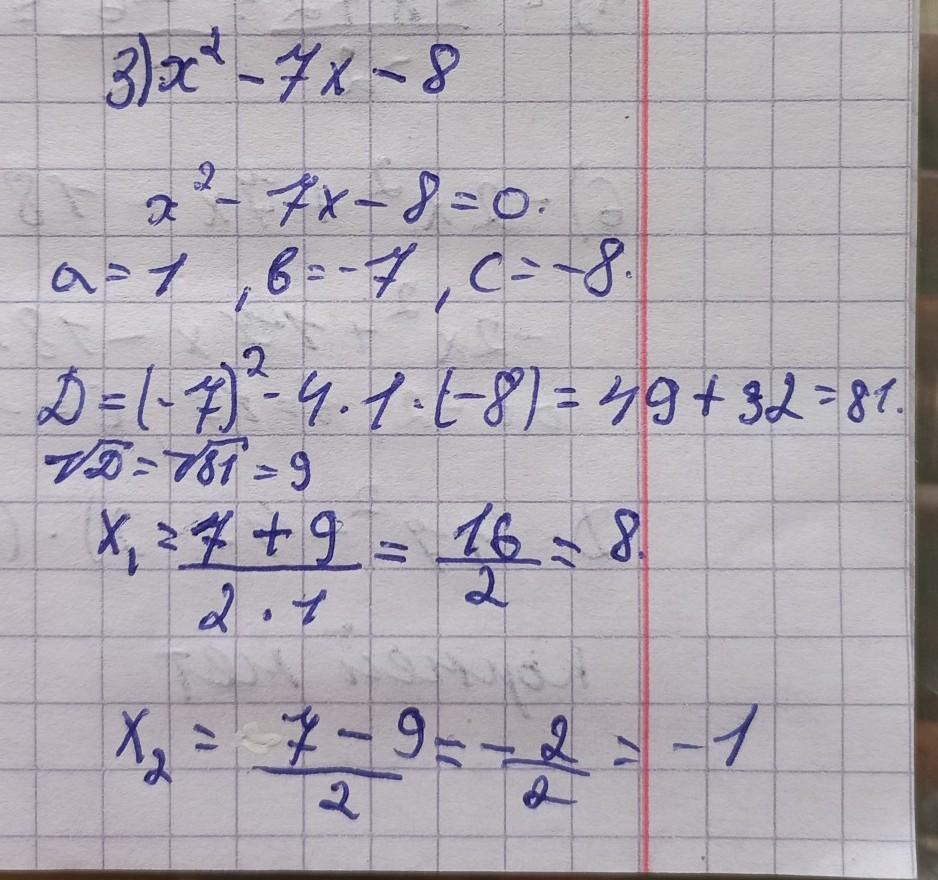 3) x² - 7x - 8
x² - 7x - 8 = 0.
a = 1 , b = -7 , c = -8.
D = (-7)² - 4 · 1 · (-8) = 49 + 32 = 81.
√D = √81 = 9
x₁ = (7 + 9)/(2 · 1) = 16/2 = 8.
x₂ = (7 - 9)/2 = -2/2 = -1